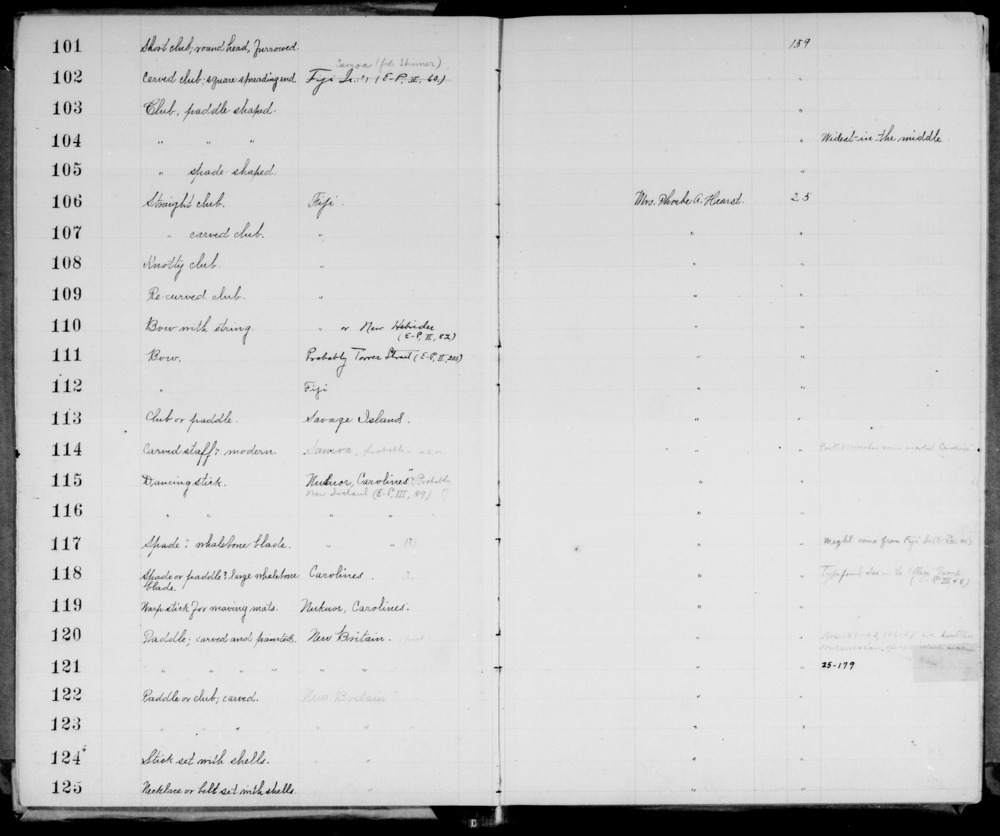 101 Short club; round head, furrowed. 159
Samoa (fide Skinner)
102 Carved club; square spreading end. Fiji Is. (E-P, II, 60.) "
103 Club, paddle shaped. "
104 " " " " Widest in the middle
105 " spade shaped. "
106 Straight club. Fiji. Mrs. Phoebe A. Hearst. 25
107 " carved club. " " "
108 Knotty club. " " "
109 Re-curved club. " " "
110 Bow with string. " or New Hebrides " "
(E-P, II, 82)
111 Bow. Probably Torres Strait (E-P, II, 205) " "
112 " Fiji " "
113 Club or paddle. Savage Island. " "
114 Carved staff: modern. Samoa, probably " "
115 Dancing stick. Nukuor, Carolines Probably " "
New Ireland (E-P, III, 89)
116 " " " " " "
117 Spade: whalebone blade. " " (?) " " Might come from Fiji Is (E-P
118 Spade or paddle? large whalebone Carolines. " " Type found also in
blade.
119 Warp stick for weaving mats. Nukuor, Carolines. " "
120 Paddle; carved and painted. New Britain. " "
121 " " " " " " " " 25-179
122 Paddle or club; carved. New Britain " "
123 " " " " " " "
124 Stick set with shells. " " " "
125 Necklace or belt set with shells. " "